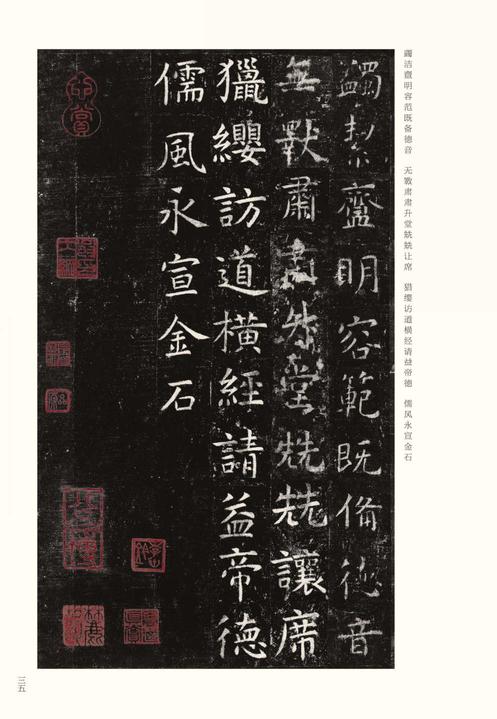 蠲絜齍明容範既備德音
無斁肅肅升堂兟兟讓席
獵纓訪道橫經請益帝德
儒風永宣金石
蠲洁齍明容范既备德音　无斁肃肃升堂兟兟让席　猎缨访道横经请益帝德　儒风永宣金石
三五